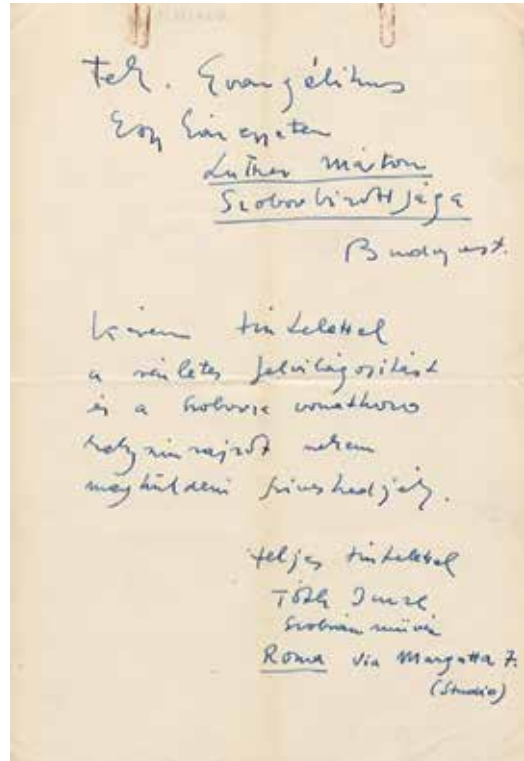 Tek. Evangélikus
Egyházegyetem
Luther Márton
Szoborbizottsága
Budapest.
Kérem tisztelettel
a részletes felvilágositást
és a szoborra vonatkozó
helyszinrajzot nekem
megküldeni sziveskedjék.
teljes tisztelettel
Tóth Imre
szobrászmüvész
Roma via Margutta 7.
(Studio)